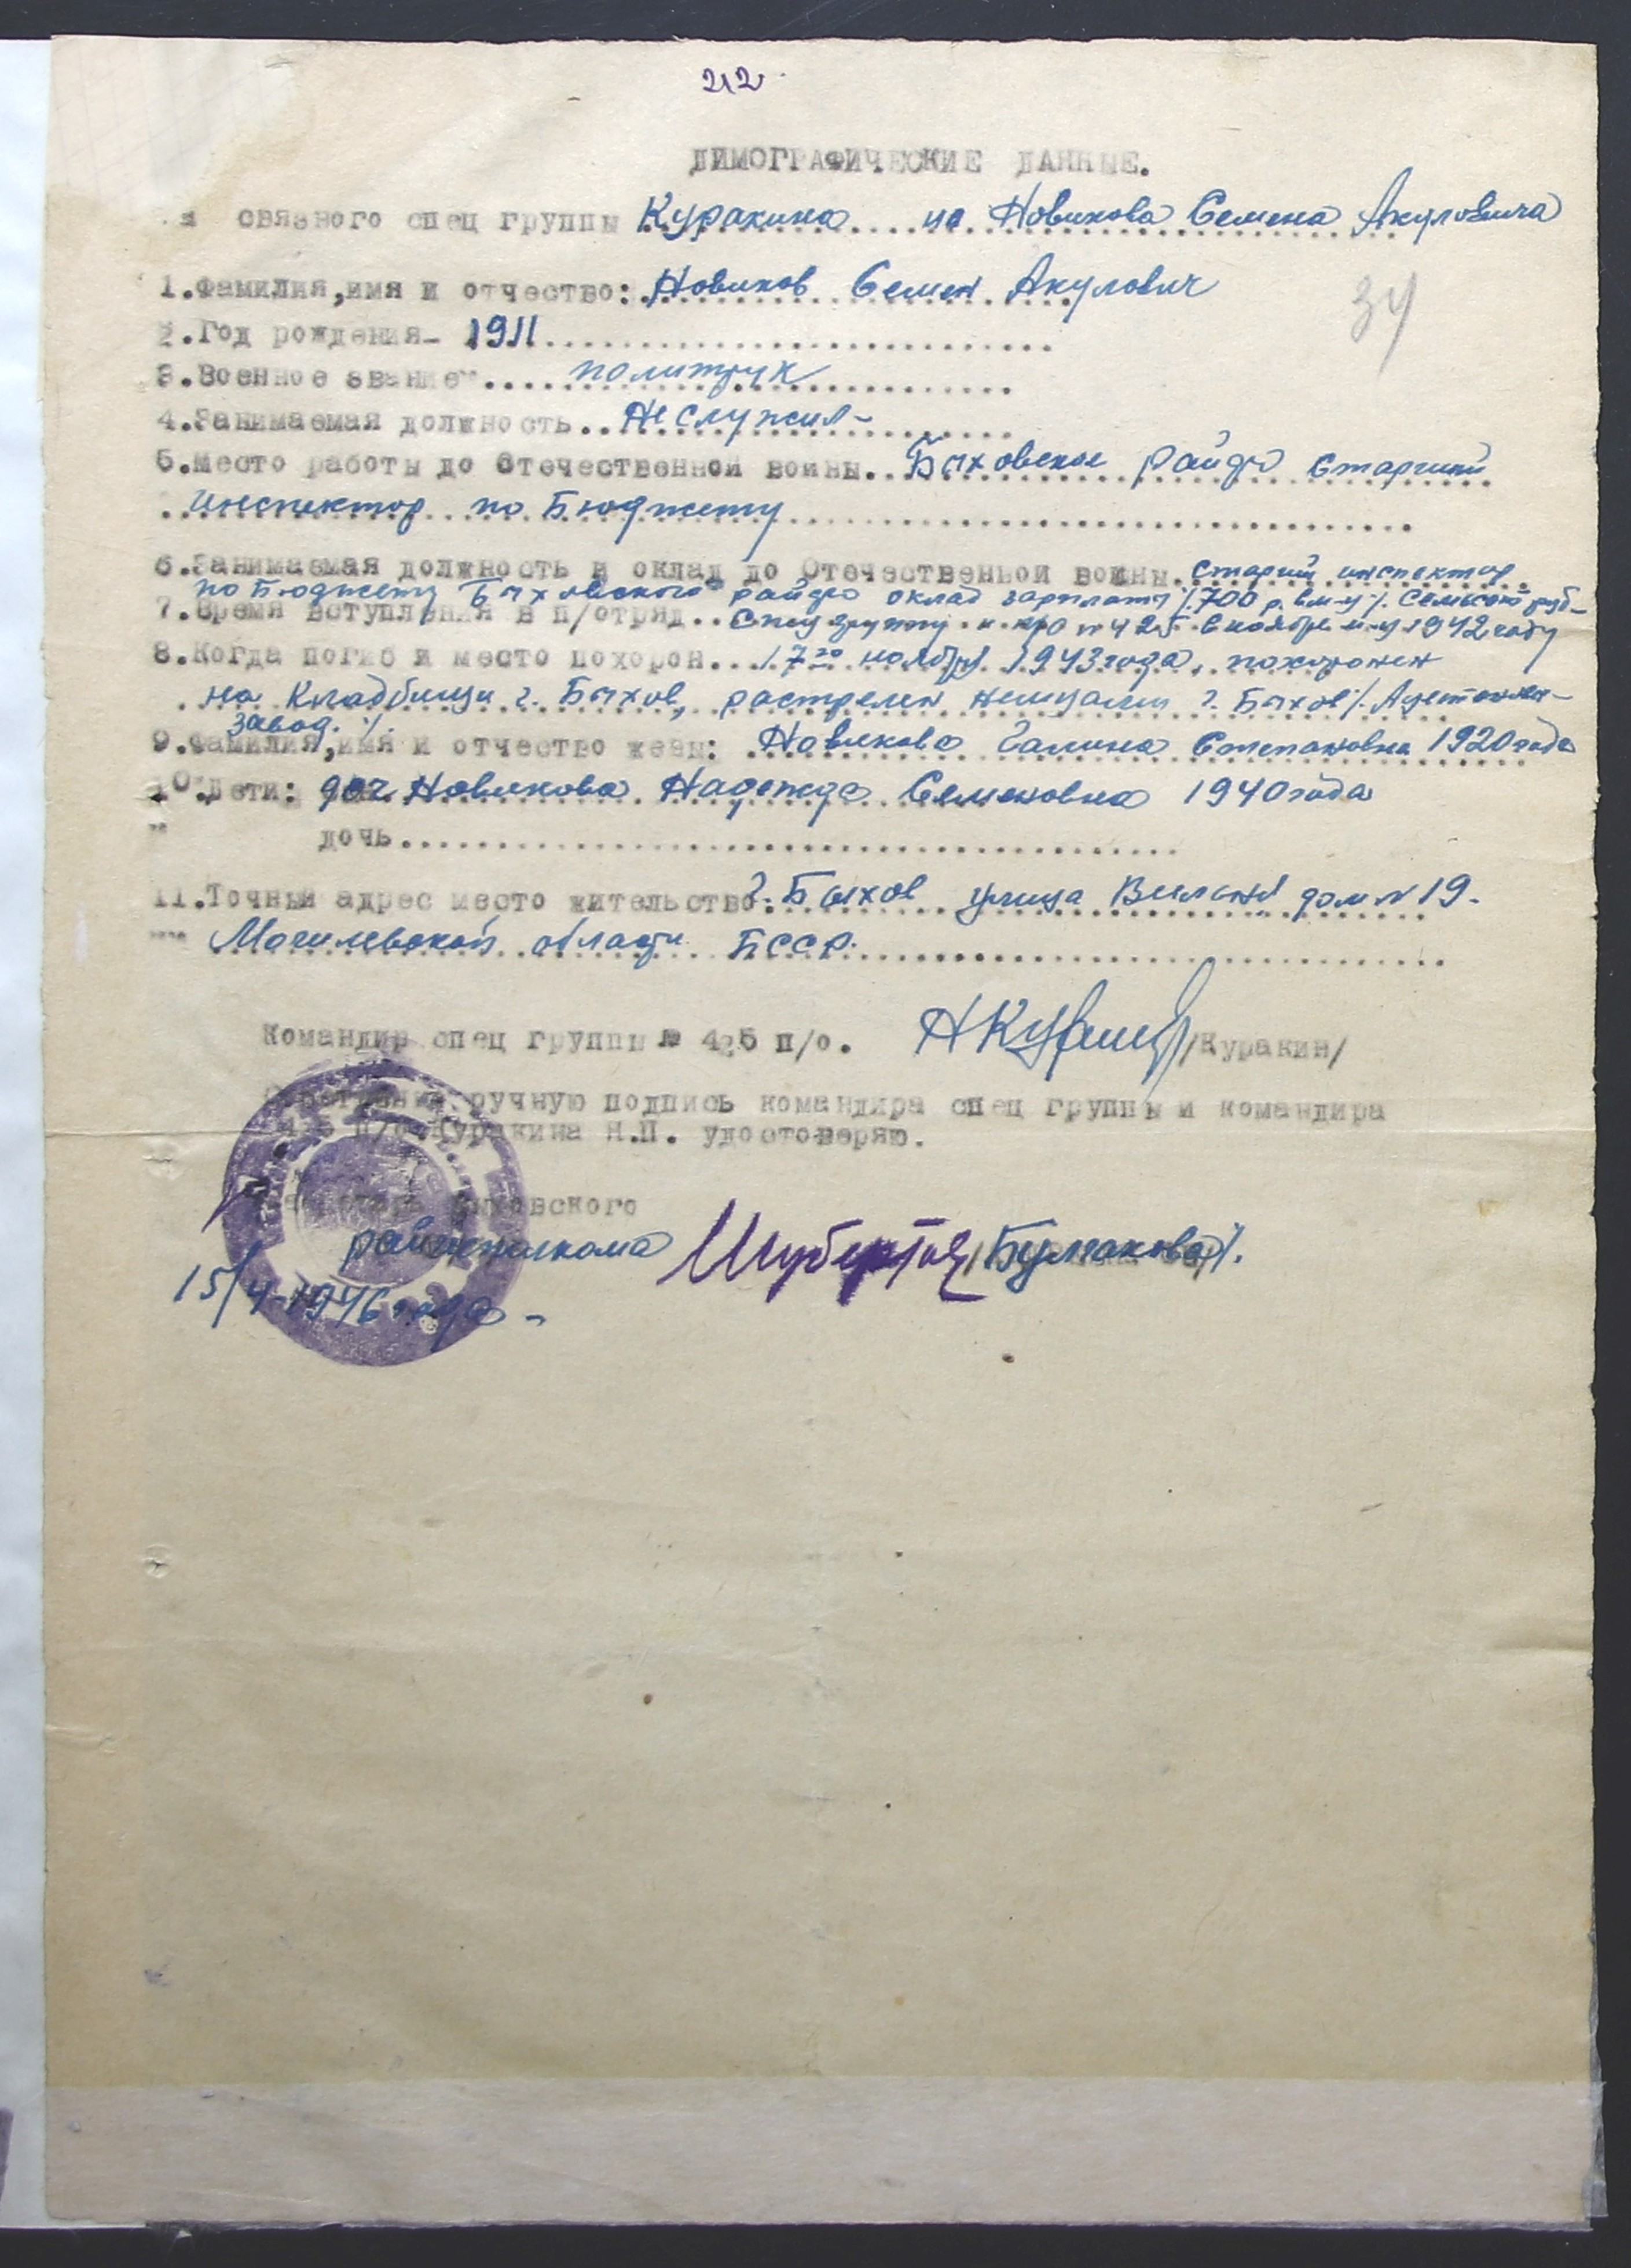 212
ДИМОГРАФИЧЕСКИЕ ДАННЫЕ.
связного спец группы Куракина на Новикова Семена Акуловича
1.Фамилия,имя и отчество: Новиков Семен Акулович
34
2.Год рождения- 1911
3.Военное звание политрук
4.Занимаемая должность.. Не служил-
5.Место работы до Отечественной войны.. Быховское райфо Старший
инспектор по Бюджету
6.Занимаемая должность и оклад до Отечественной войны. Старший инспектор
по Бюджету Быховского райфо оклад зарплаты /.700 р. в м-ц /. Семьсот руб-
7.Время вступления в п/отряд.. Спец группу и п/о №425 в ноябре м-ц 1942 году
8.Когда погиб и место похорон... 17го ноября 1943 года, похоронен
на Кладбищи г. Быхов, растрелен немцами г. Быхов /.
завод. /.
9.Фамилия,имя и отчество жены: Новикова Галина Степановна 1920 года
10.Дети: доч Новикова Надежда Семеновна 1940 года
дочь
11.Точный адрес место жительство: г. Быхов улица дом №19.
Могилевской области БССР.
Командир спец группы № 425 п/о. НКуракин /Куракин/
ручную подпись командира спец группы и командира
п/о Куракина Н.П. удостоверяю.
Быховского
райисполкома /Булгакова/.
15/4-1946 года-